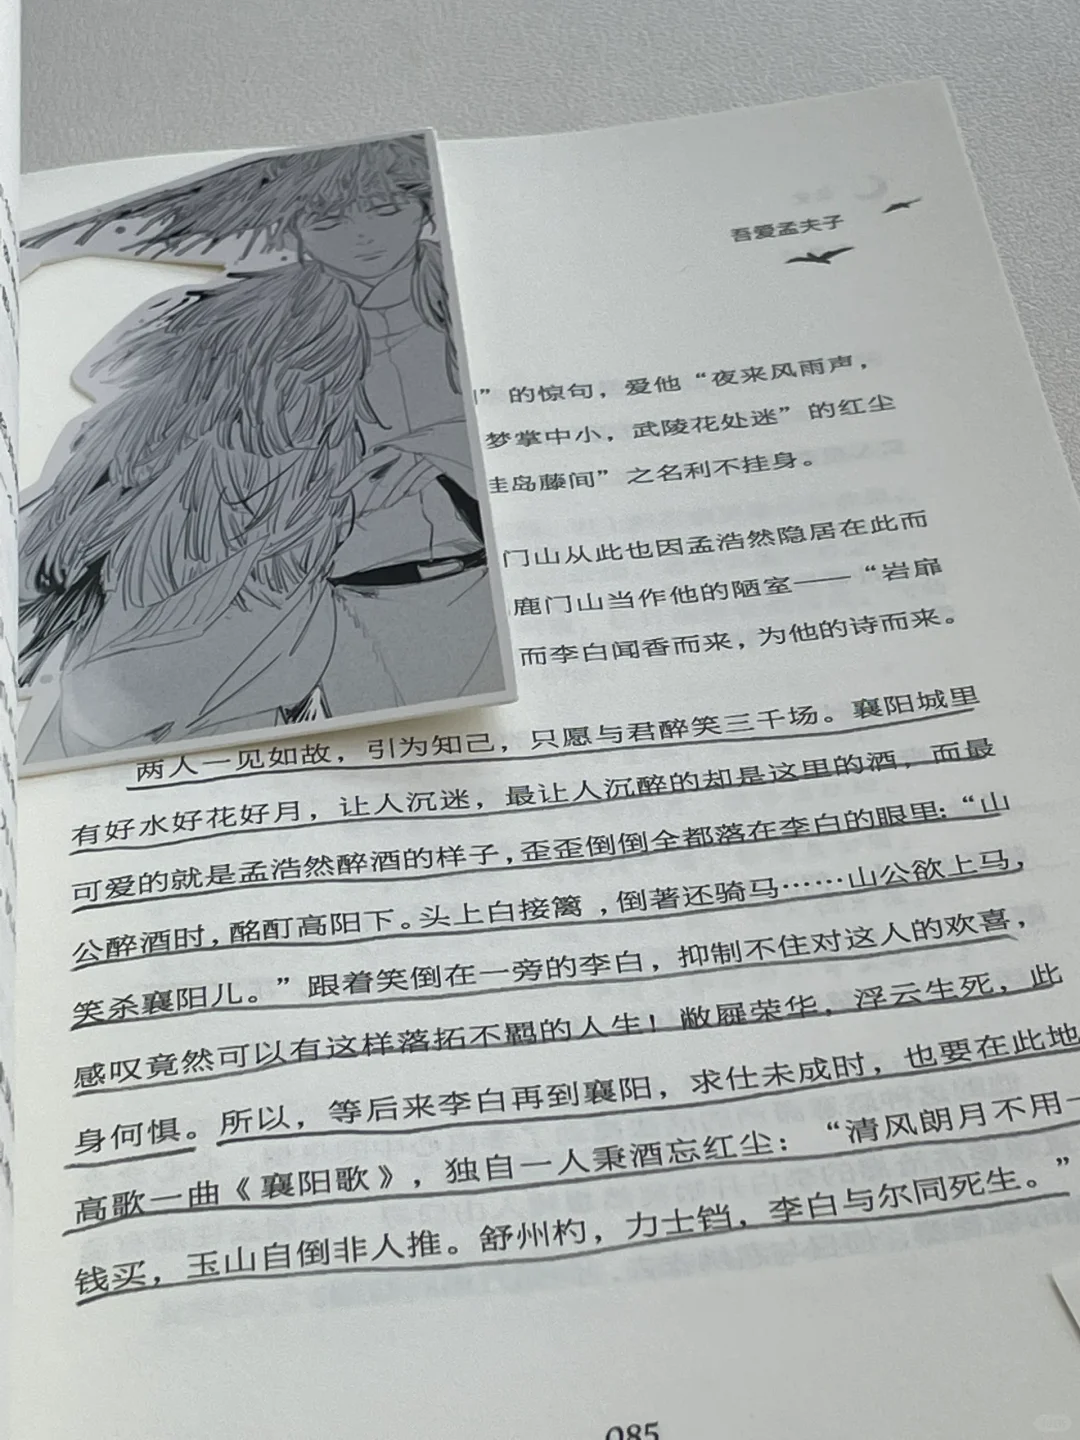 吾爱孟夫子
”的惊句，爱他“夜来风雨声，
梦掌中小，武陵花处迷”的红尘
岛藤间”之名利不挂身。
门山从此也因孟浩然隐居在此而
鹿门山当作他的陋室——“岩扉
而李白闻香而来，为他的诗而来。
两人一见如故，引为知己，只愿与君醉笑三千场。襄阳城里
有好水好花好月，让人沉迷，最让人沉醉的却是这里的酒，而最
可爱的就是孟浩然醉酒的样子，歪歪倒倒全都落在李白的眼里：“山
公醉酒时，酩酊高阳下。头上白接篱，倒著还骑马……山公欲上马，
笑杀襄阳儿。”跟着笑倒在一旁的李白，抑制不住对这人的欢喜，
感叹竟然可以有这样落拓不羁的人生！敝屣荣华，浮云生死，此
身何惧。所以，等后来李白再到襄阳，求仕未成时，也要在此地
高歌一曲《襄阳歌》，独自一人秉酒忘红尘：“清风朗月不用一
钱买，玉山自倒非人推。舒州杓，力士铛，李白与尔同死生。”
085